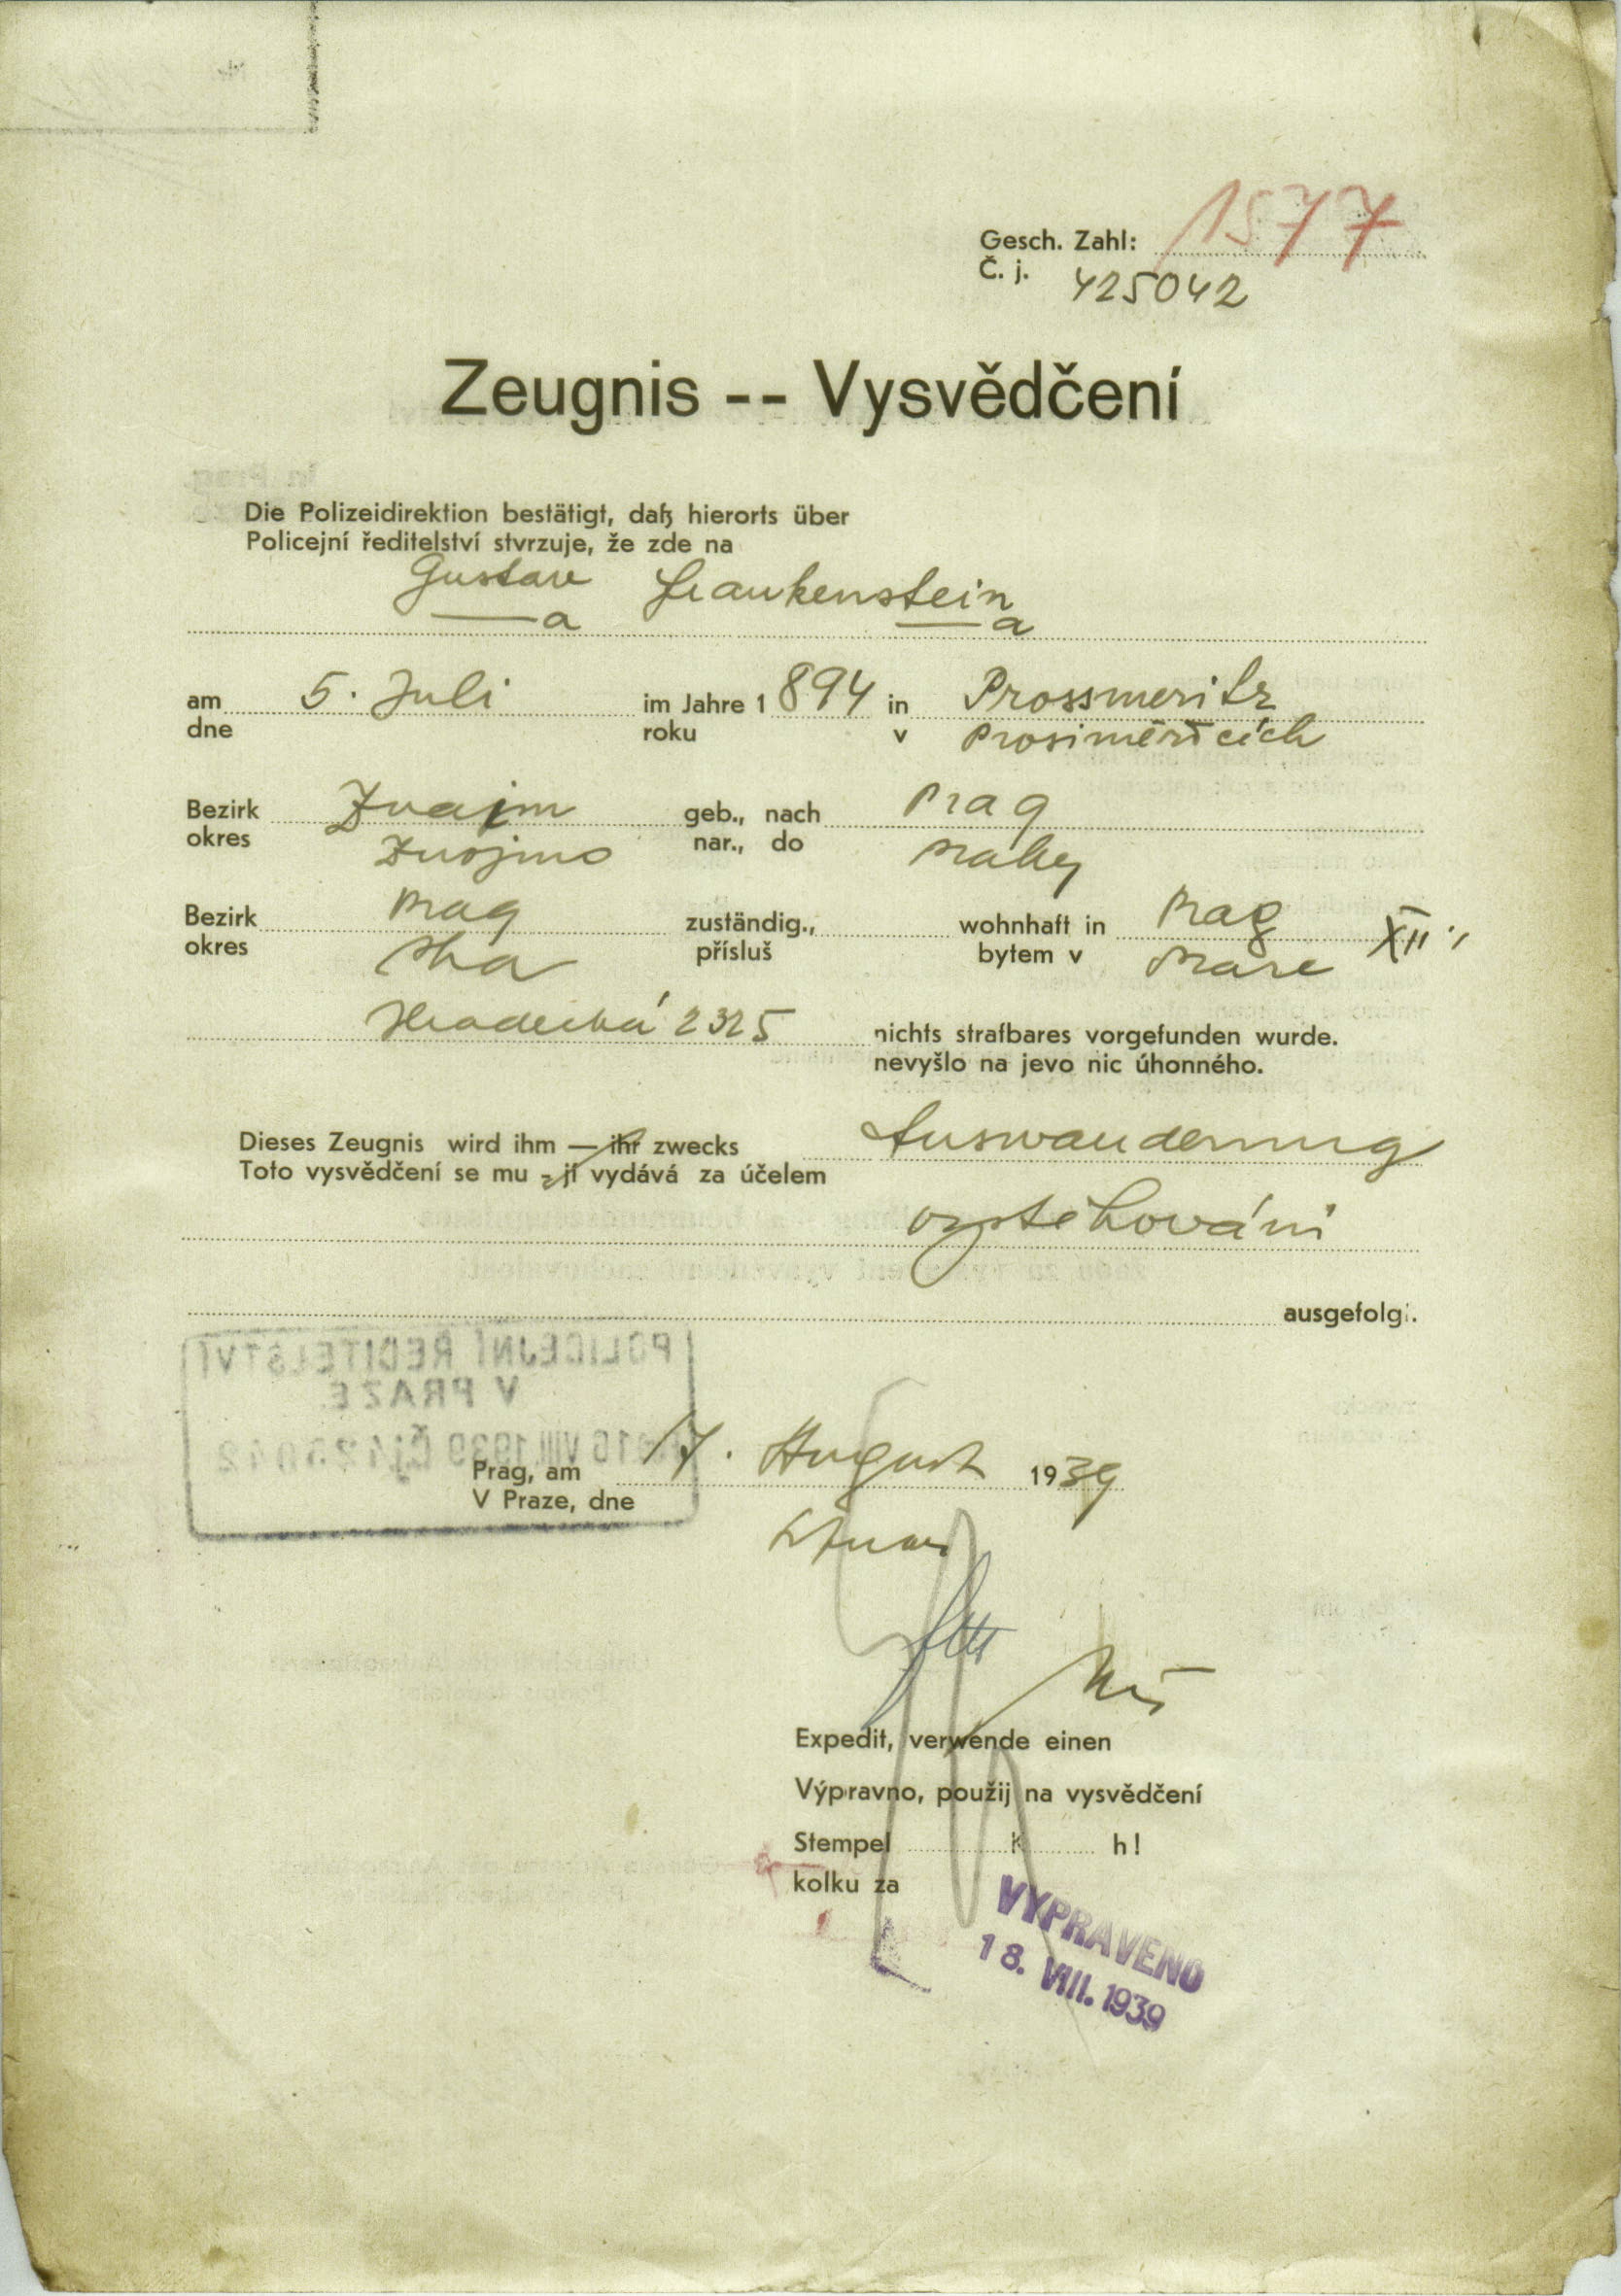 Gesch. Zahl: 1577
Č. j. 425042
Zeugnis -- Vysvědčení
Die Polizeidirektion bestätigt, daß hierorts über
Policejní ředitelství stvrzuje, že zde na
Gustav Frankenstein
—a —a
am 5. Juli im Jahre 1894 in Prossmeritz
dne roku v Prosiměřicích
Bezirk Znaim geb., nach Prag
okres Znojmo nar., do Prahy
Bezirk Prag zuständig., wohnhaft in Prag XII.,
okres Pha přísluš bytem v Praze
Hradecká 2325 nichts strafbares vorgefunden wurde.
nevyšlo na jevo nic úhonného.
Dieses Zeugnis wird ihm — ihr zwecks Auswanderung
Toto vysvědčení se mu - jí vydává za účelem
vystěhování
ausgefolgt.
POLICEJNÍ ŘEDITELSTVÍ
V PRAZE
16 VIII 1939 Čj 425042
Prag, am 17. August 1939
V Praze, dne
Expedit, verwende einen
Výpravno, použij na vysvědčení
Stempel K h!
kolku za
VYPRAVENO
18. VIII. 1939